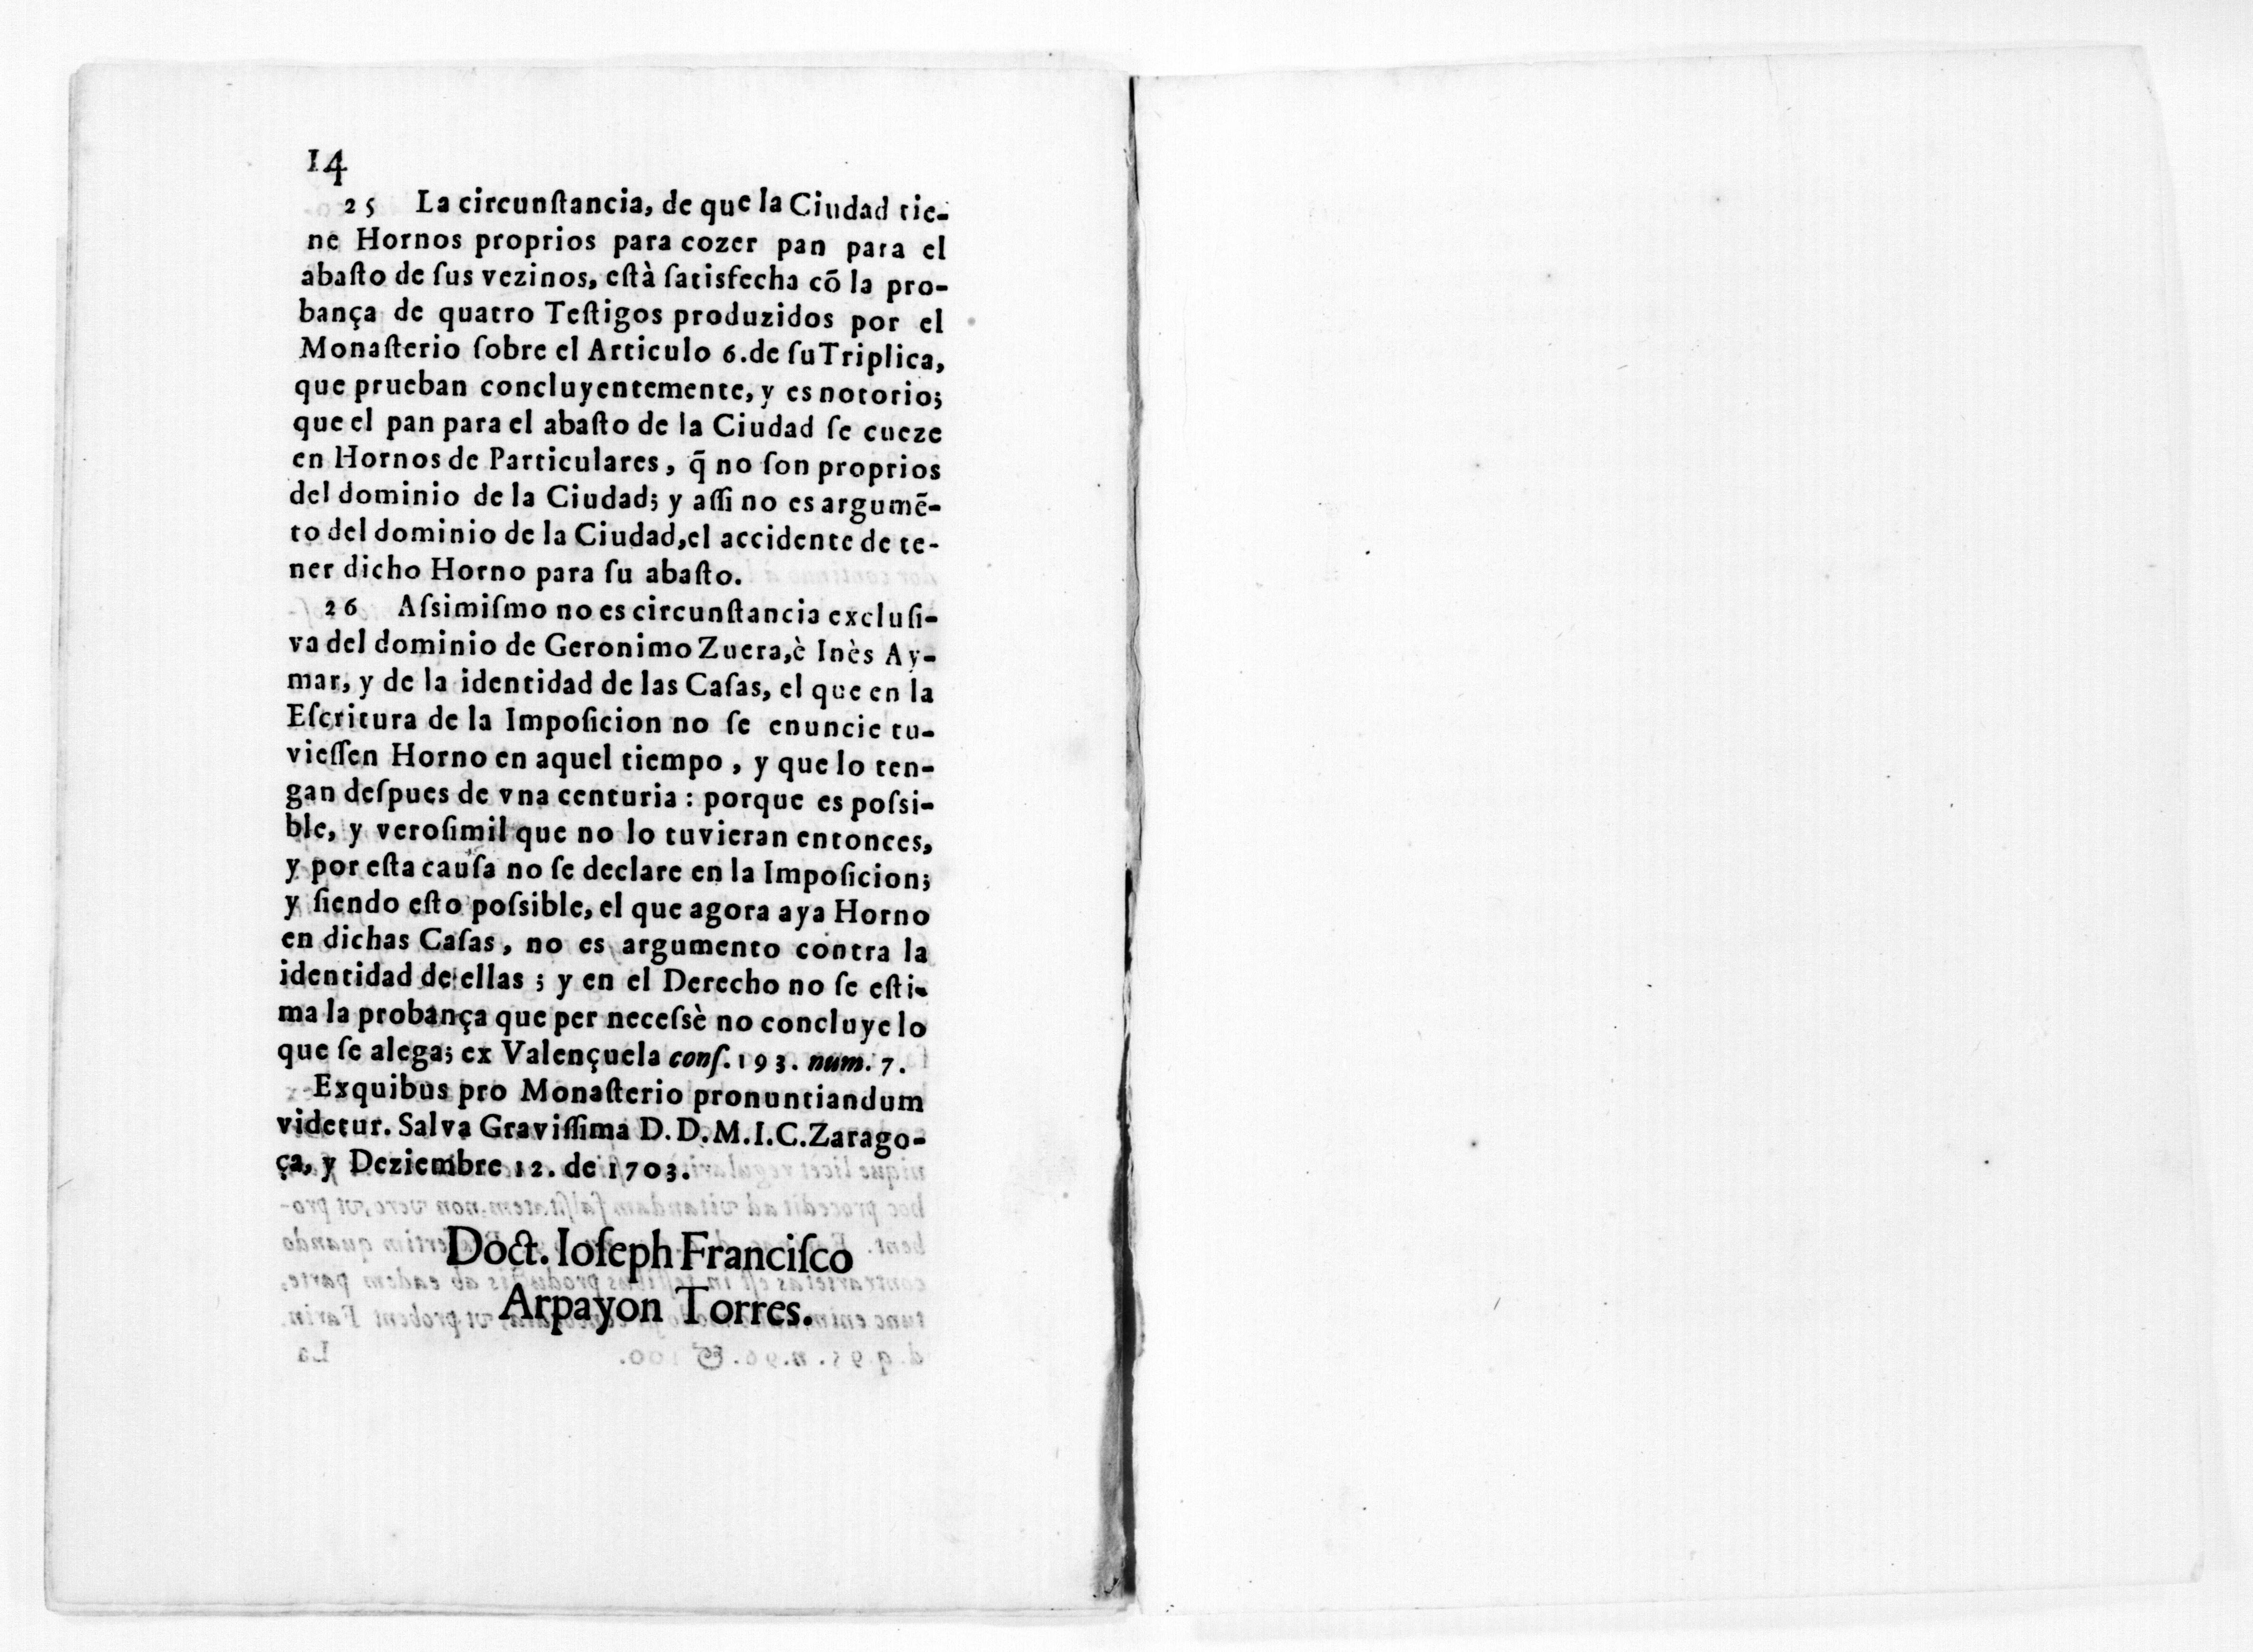 14
25 La circunſtancia, de que la Ciudad tie-
ne Hornos proprios para cozer pan para el
abaſto de ſus vezinos, eſtà ſatisfecha cõ la pro-
bança de quatro Teſtigos produzidos por el
Monaſterio ſobre el Articulo 6.de ſuTriplica,
que prueban concluyentemente, y es notorio;
que el pan para el abaſto de la Ciudad ſe cueze
en Hornos de Particulares, q̃ no ſon proprios
del dominio de la Ciudad; y aſſi no es argumẽ-
to del dominio de la Ciudad,el accidente de te-
ner dicho Horno para ſu abaſto.
26 Aſsimiſmo no es circunſtancia excluſi-
va del dominio de Geronimo Zuera,è Inès Ay-
mar, y de la identidad de las Caſas, el que en la
Eſcritura de la Impoſicion no ſe enuncie tu-
vieſſen Horno en aquel tiempo, y que lo ten-
gan deſpues de vna centuria: porque es poſsi-
ble, y veroſimil que no lo tuvieran entonces,
y por eſta cauſa no ſe declare en la Impoſicion;
y ſiendo eſto poſsible, el que agora aya Horno
en dichas Caſas, no es argumento contra la
identidad de ellas; y en el Derecho no ſe eſti-
ma la probança que per neceſsè no concluye lo
que ſe alega; ex Valençuela conſ. 193. num. 7.
Exquibus pro Monaſterio pronuntiandum
videtur. Salva Graviſſima D.D.M.I.C.Zarago-
ça, y Deziembre 12. de 1703.
Doct. Ioſeph Franciſco
Arpayon Torres.